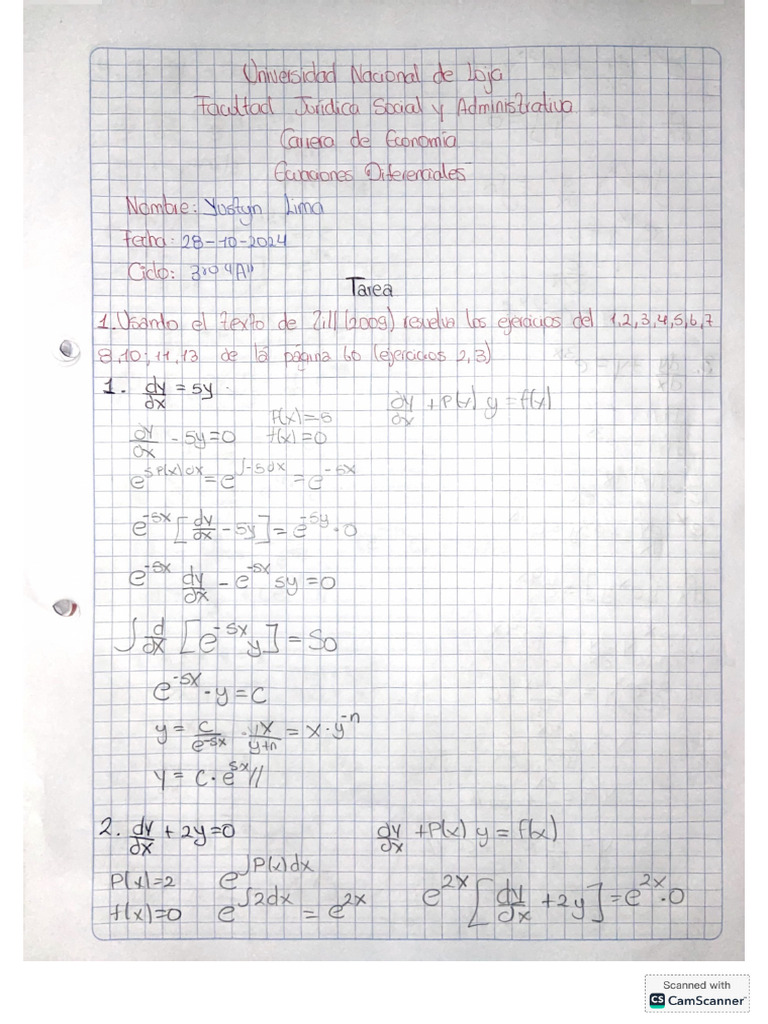 Universidad Nacional de Loja
Facultad Jurídica Social y Administrativa
Carrera de Economía
Ecuaciones Diferenciales
Nombre: Yostyn Lima
Fecha: 28-10-2024
Ciclo: 3ro "A"
Tarea
1. Usando el texto de Zill (2009) resuelva los ejercicios del 1,2,3,4,5,6,7
8,10,11,13 de la página 60 (ejercicios 2,3)
1. dy/dx = 5y
dy/dx + P(x) y = f(x)
f(x)=-5
dy/dx - 5y=0 f(x)=0
e^∫P(x)dx = e^∫-5dx = e^-5x
e^-5x [dy/dx - 5y] = e^-5y · 0
e^-5x dy/dx - e^-5x 5y = 0
∫ d/dx [e^-5x y] = ∫0
e^-5x · y = c
y = c/e^-5x · 1x/y+n = x · y^-n
y = c · e^5x //
2. dy/dx + 2y=0 dy/dx + P(x) y = f(x)
P(x)=2 e^∫P(x)dx
f(x)=0 e^∫2dx = e^2x e^2x [dy/dx + 2y] = e^2x · 0
Scanned with
CS CamScanner